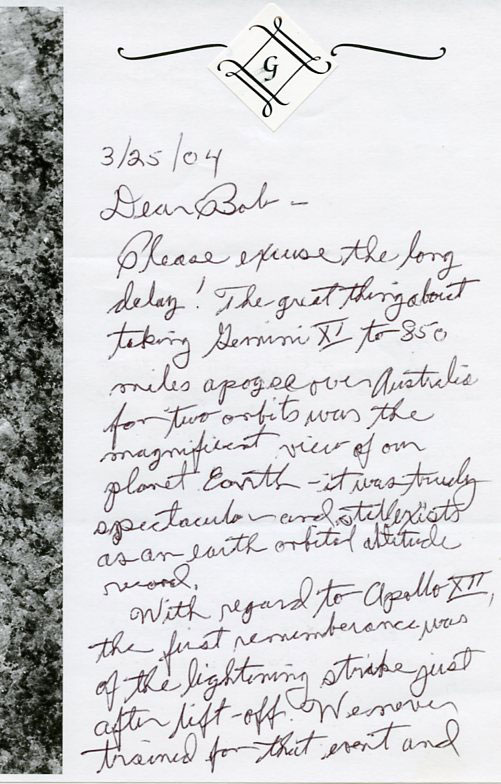 G
3/25/04
Dear Bob -
Please excuse the long
delay! The great thing about
taking Gemini XI to 850
miles apogee over Australia
for two orbits was the
magnificent view of our
planet Earth - it was truly
spectacular and still exists
as an earth orbital altitude
record.
With regard to Apollo XII,
the first rememberance was
of the lightning strike just
after lift-off. We never
trained for that event and